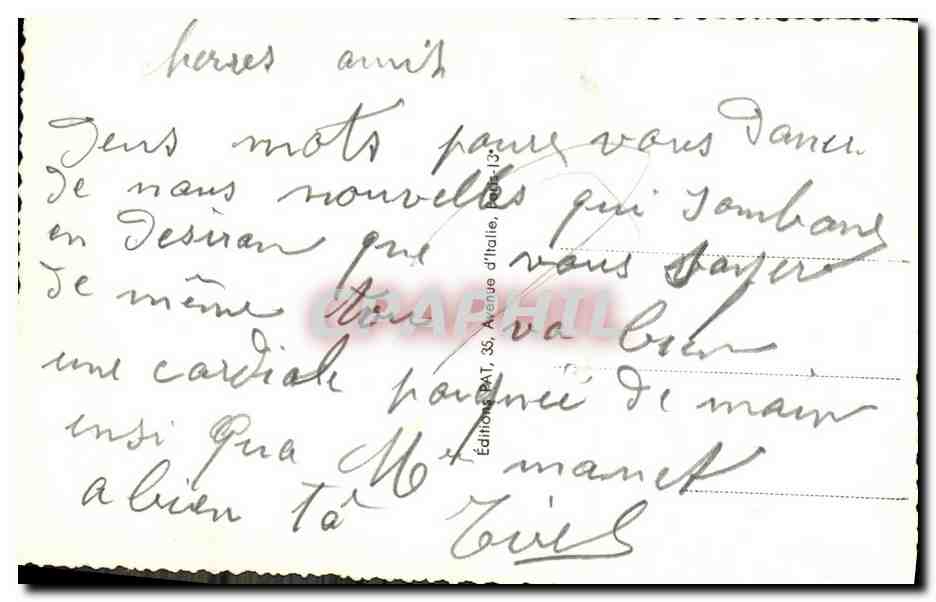 herres amis
Deus mots poure vous Daner
de nous nouvelles qui sombone
en Desiran que vous soyer
de même tou va bien
une cardiale poignée de main
ensi Qua Mr manet
a bien tô
Éditions PAT, 35, Avenue d'Italie, Paris-13e
CPAPHIL